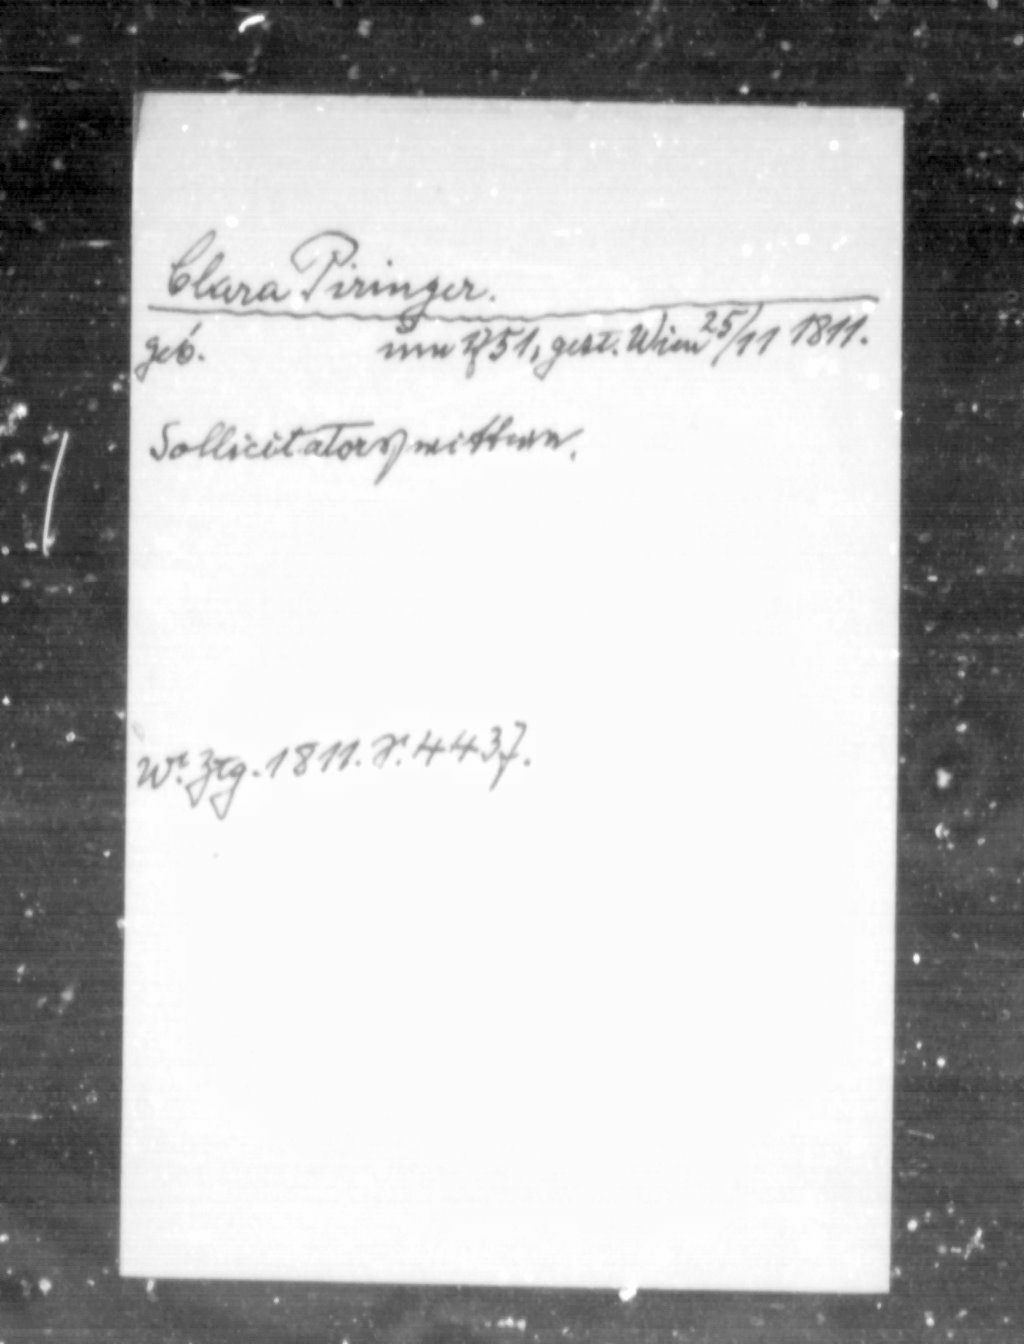 Clara Piringer.
geb. um 751, gest. Wien 25/11 1811.
Sollicitatorswittwe.
Wr. Ztg. 1811. S. 4437.